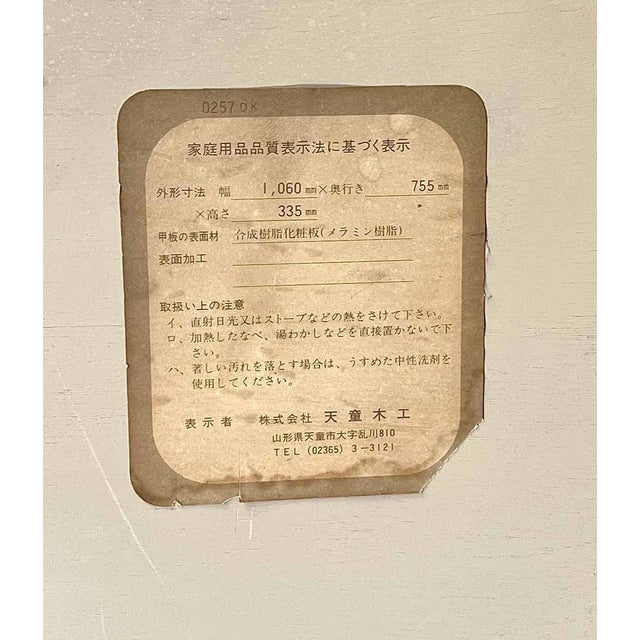 0257 DK
家庭用品品質表示法に基づく表示
外形寸法 幅 1,060mm×奥行き 755mm
×高さ 335mm
甲板の表面材 合成樹脂化粧板(メラミン樹脂)
表面加工
取扱い上の注意
イ、直射日光又はストーブなどの熱をさけて下さい。
ロ、加熱したなべ、湯わかしなどを直接置かないで下
さい。
ハ、著しい汚れを落とす場合は、うすめた中性洗剤を
使用してください。
表示者 株式会社 天童木工
山形県天童市大字乱川810
TEL (02365) 3-3121